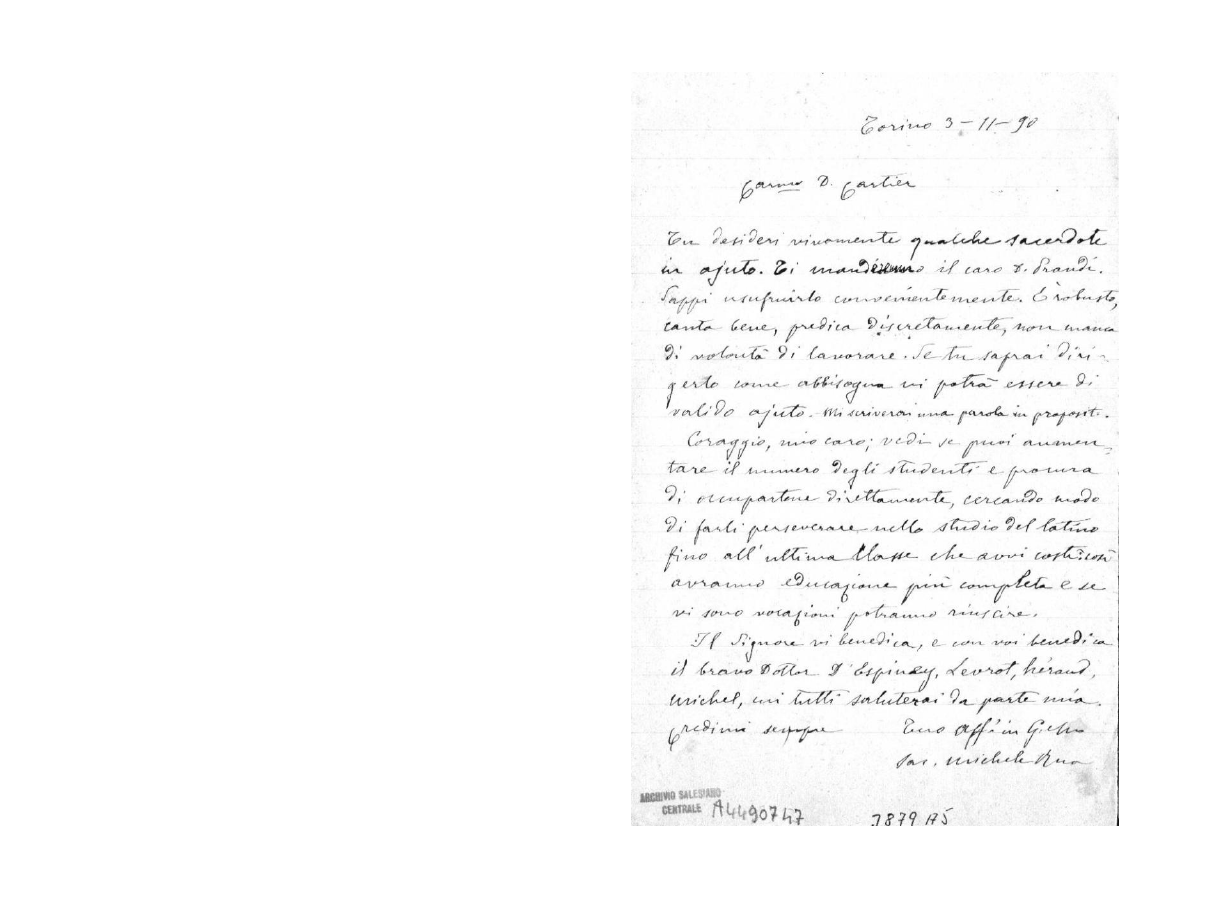 Torino 3-11-90
Carmo D. Cartier
Tu desideri vivamente qualche sacerdote
in ajuto. Ti manderemo il caro D. Prandi.
Sappi usufruirlo convenientemente. È robusto,
canta bene, predica discretamente, non manca
di volontà di lavorare. Se tu saprai diri-
gerlo come abbisogna vi potrà essere di
valido ajuto. Mi scriverai una parola in proposit.
Coraggio, mio caro; vedi se puoi aumen-
tare il numero degli studenti e procura
di occupartene direttamente, cercando modo
di farli perseverare nello studio del latino
fino all'ultima classe che avvi costì: così
avranno educazione più completa e se
vi sono vocazioni potranno riuscire.
Il Signore vi benedica, e con voi benedica
il bravo Dottor D'Espiney, Levrot, héraud,
michel, cui tutti saluterai da parte mia.
Credimi sempre Tuo aff. in Gesù
Sac. Michele Rua
ARCHIVIO SALESIANO
CENTRALE A4490747
3879 A5